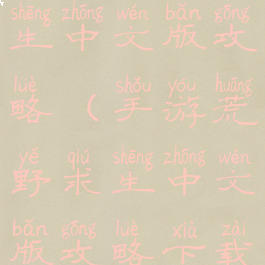 shēng zhōng wén bǎn gōng
生中文版攻
lüè shǒu yóu huāng
略(手游荒
yě qiú shēng zhōng wén
野求生中文
bǎn gōng lüè xià zài
版攻略下载